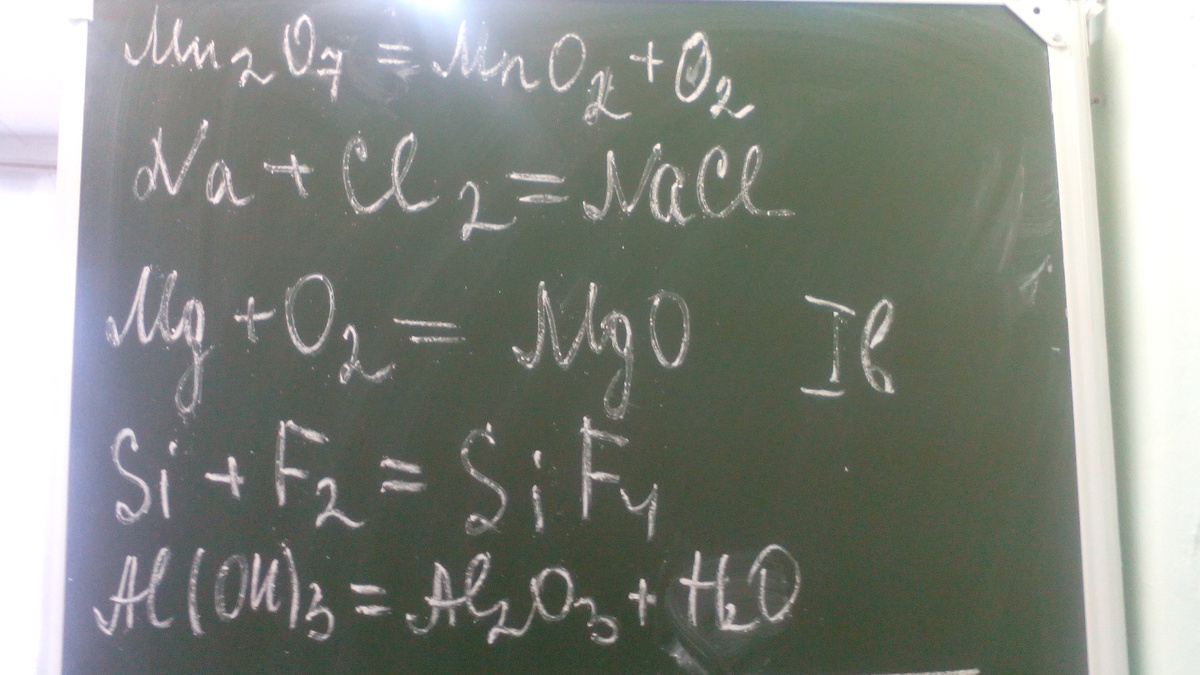 Mn₂O₇ = MnO₂ + O₂
Na + Cl₂ = NaCl
Mg + O₂ = MgO
Iв
Si + F₂ = SiF₄
Al(OH)₃ = Al₂O₃ + H₂O